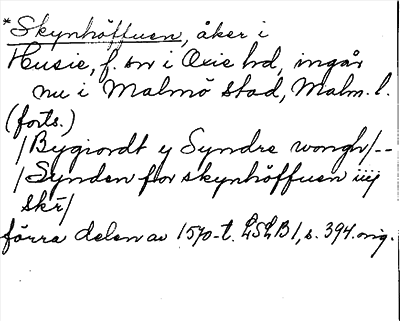 *Skynhöffuen, åker i
Husie, f. sn i Oxie hd, ingår
nu i Malmö stad, Malm. l.
(forts.)
/Bygiordt y Syndre wongh/--
/Synden for skynhöffuen iiij
skr/
förra delen av 1570-t. LSLB1, s. 394. orig.